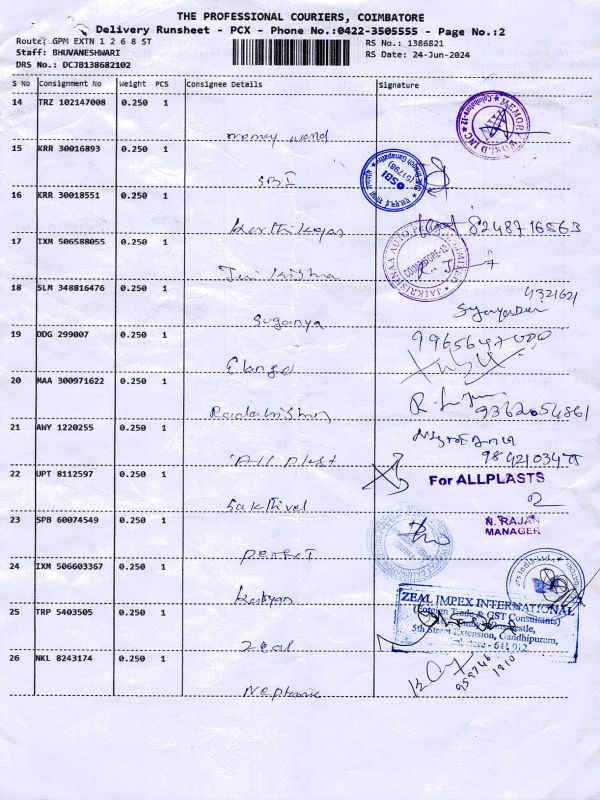 THE PROFESSIONAL COURIERS, COIMBATORE
Delivery Runsheet - PCX - Phone No.:0422-3505555 - Page No.:2
Route: GPM EXTN 1 2 6 8 ST
RS No.: 1386821
Staff: BHUVANESHWARI
RS Date: 24-Jun-2024
DRS No.: DCJB138682102
S No Consignment No Weight PCS Consignee Details Signature
14 TRZ 102147008 0.250 1
MEMORY WORLD INC
Coimbatore-12
memory world
15 KRR 30016893 0.250 1
SBI
SBI
(51796)
16 KRR 30018551 0.250 1
Karthikeyan 8248716563
17 IXM 506588055 0.250 1
COIMBATORE-12
Jai Krishna
18 SLM 348816476 0.250 1
Suganya
19 DDG 299007 0.250 1
Elango
20 MAA 300971622 0.250 1
Radakrishnan 9362054861
21 AWY 1220255 0.250 1
All plast
22 UPT 8112597 0.250 1
For ALLPLASTS
Sakthivel
23 SPB 60074549 0.250 1
N. RAJAN
MANAGER
perfect
24 IXM 506603367 0.250 1
25 TRP 5403505 0.250 1
ZEAL IMPEX INTERNATIONAL
(Foreign Trade & GST Consultants)
5th Street Extension, Gandhipuram,
641 012
Zeal
26 NKL 8243174 0.250 1
Neptune